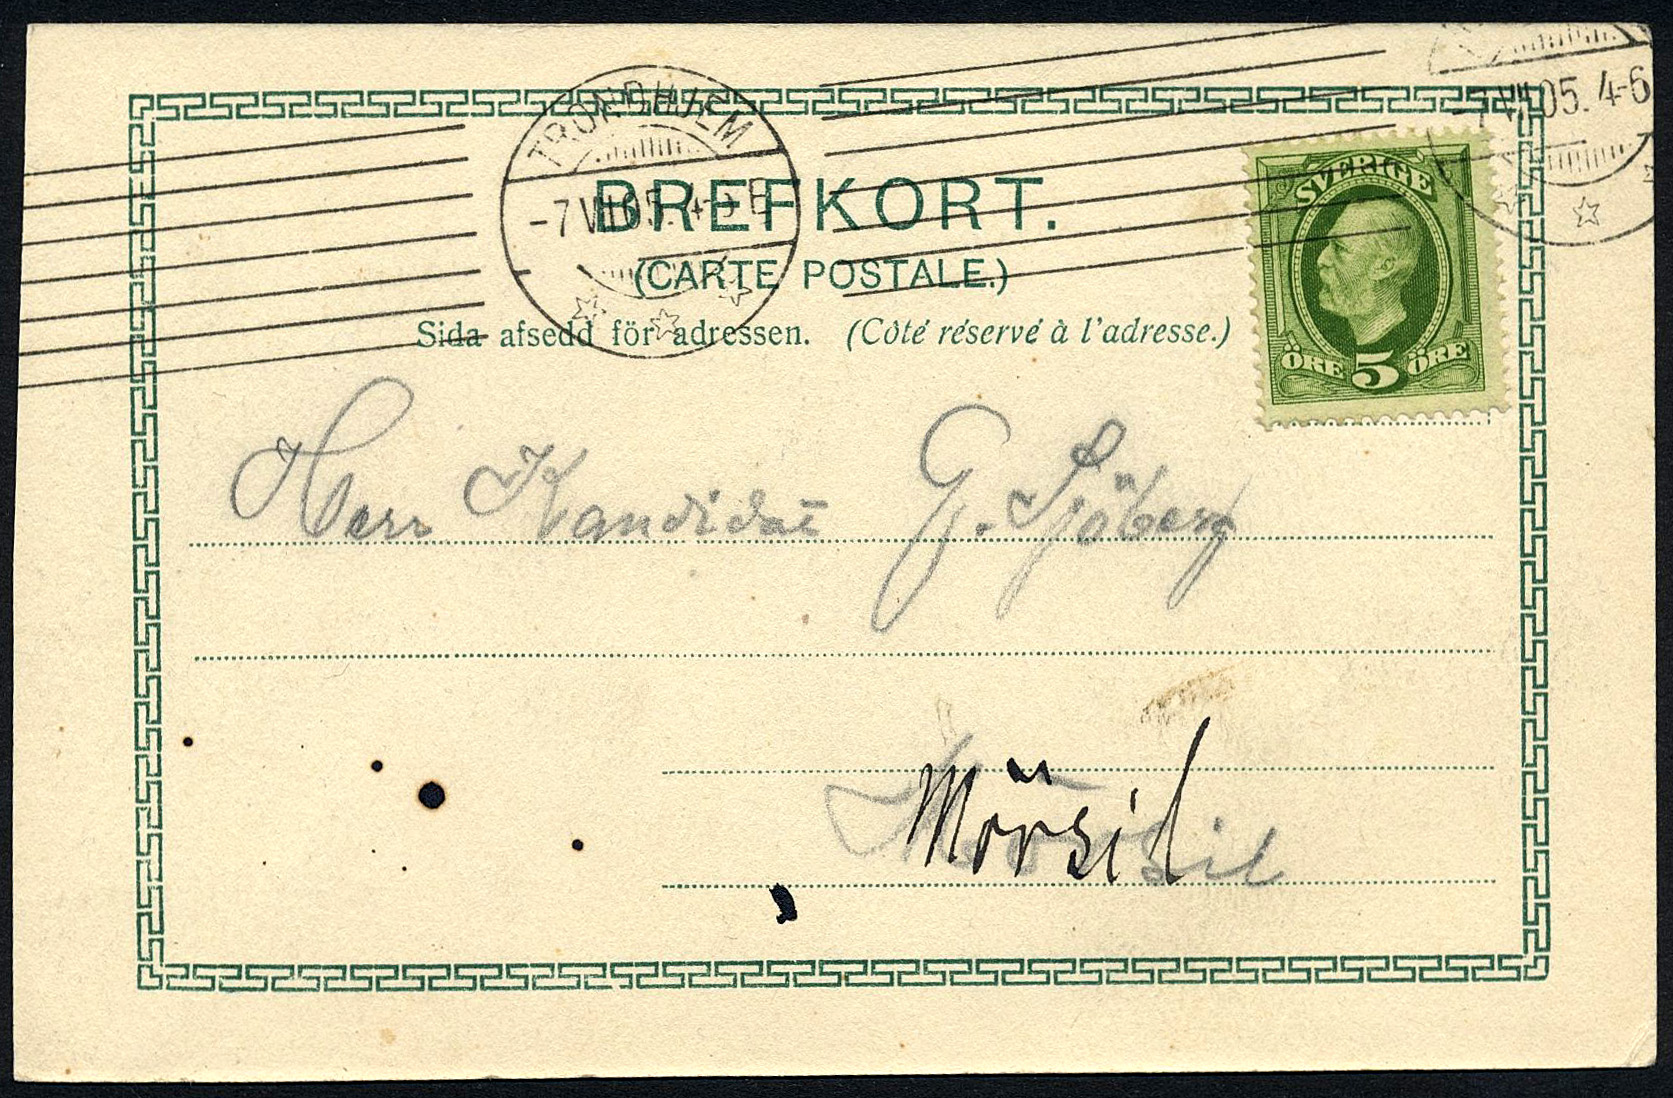 TRONDHJEM
-7 VII 05. 4-5 E
-7 VII 05. 4-6
SVERIGE
ÖRE 5 ÖRE
BREFKORT.
(CARTE POSTALE.)
Sida afsedd för adressen. (Côté réservé à l'adresse.)
Herr Kandidat G. Sjöberg
Mörsil
Mörsil